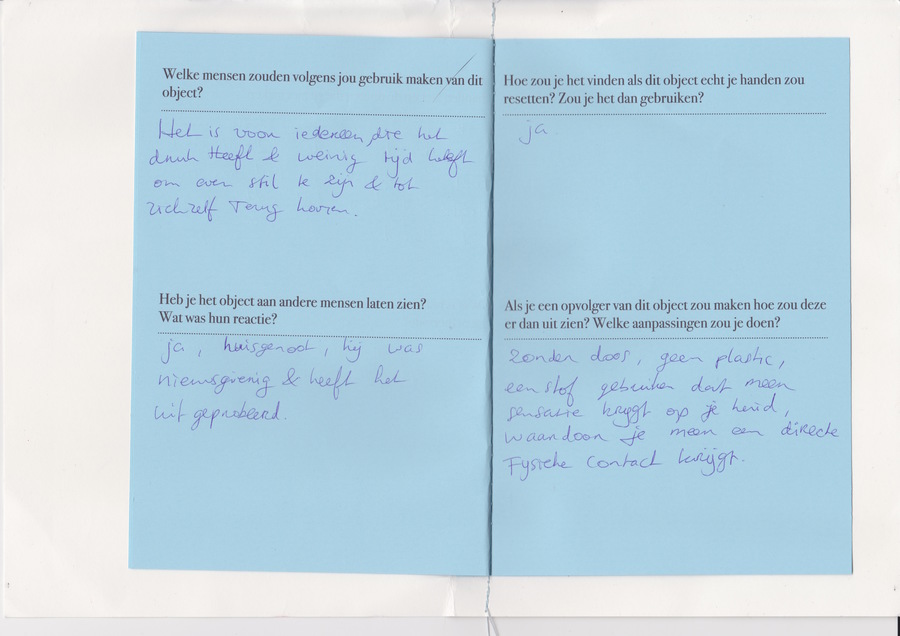 Welke mensen zouden volgens jou gebruik maken van dit
object?
Het is voor iedereen, die het
druk Heeft & weinig tijd heeft
om even stil te zijn & tot
zichzelf Terug komen.
Heb je het object aan andere mensen laten zien?
Wat was hun reactie?
ja, huisgenoot, hij was
nieuwsgierig & heeft het
uit geprobeerd.
Hoe zou je het vinden als dit object echt je handen zou
resetten? Zou je het dan gebruiken?
ja.
Als je een opvolger van dit object zou maken hoe zou deze
er dan uit zien? Welke aanpassingen zou je doen?
zonder doos, geen plastic,
een stof gebruiken dat meer
sensatie krijgt op je huid,
waardoor je meer een directe
Fysieke contact krijgt.